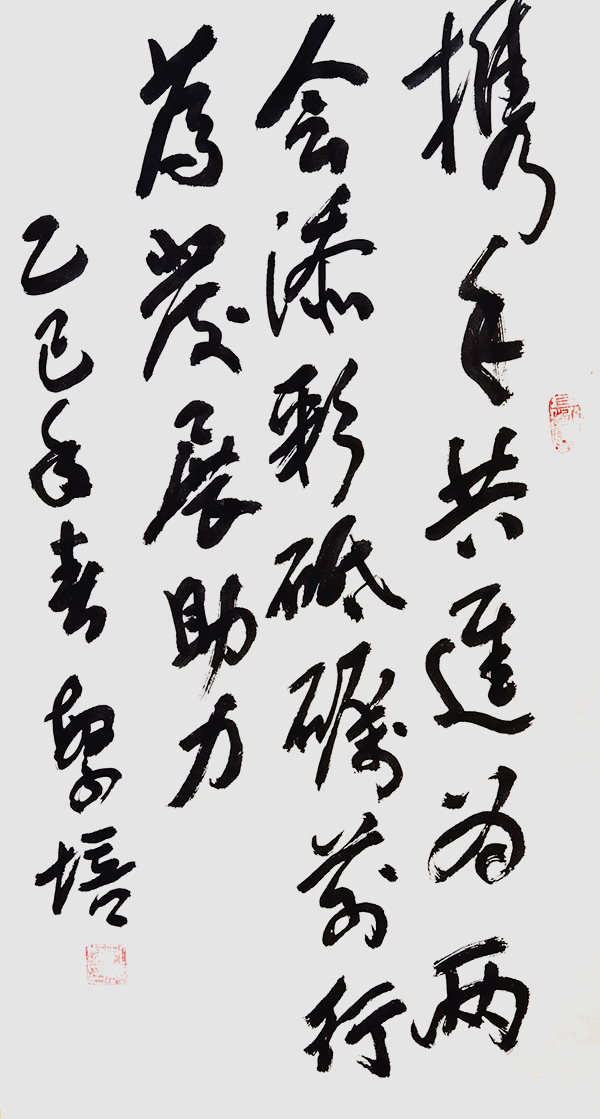 携手共進为两
会添彩砥砺前行
為發展助力
乙巳年春黎培